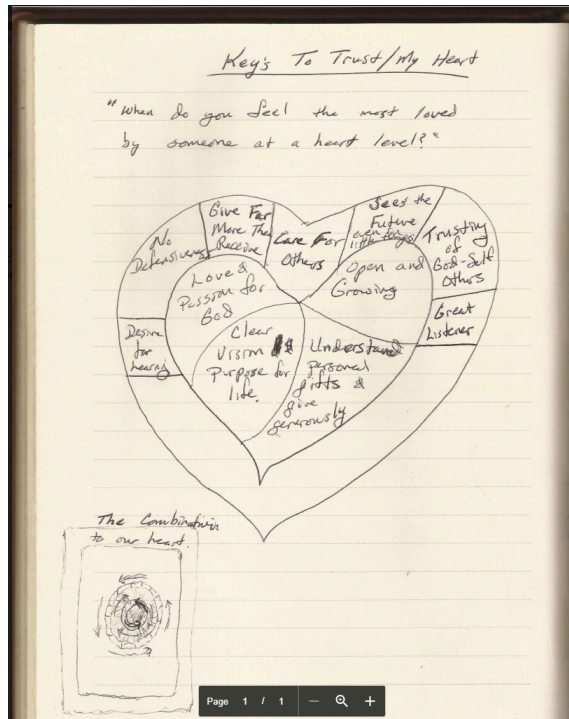 Key's To Trust/My Heart
"When do you feel the most loved
by someone at a heart level?"
No
Defensiveness
Give Far
More Then
Receive
Care For
Others
Sees the
Future
even in
little things
Trusting
of
God-Self
Others
Desire
for
hearing
Great
Listener
Love &
Passion for
God
Open and
Growing
Clear
Vision &
purpose for
life.
Understand
personal
gifts &
give
generously
The Combination
to our heart.
Page 1 / 1